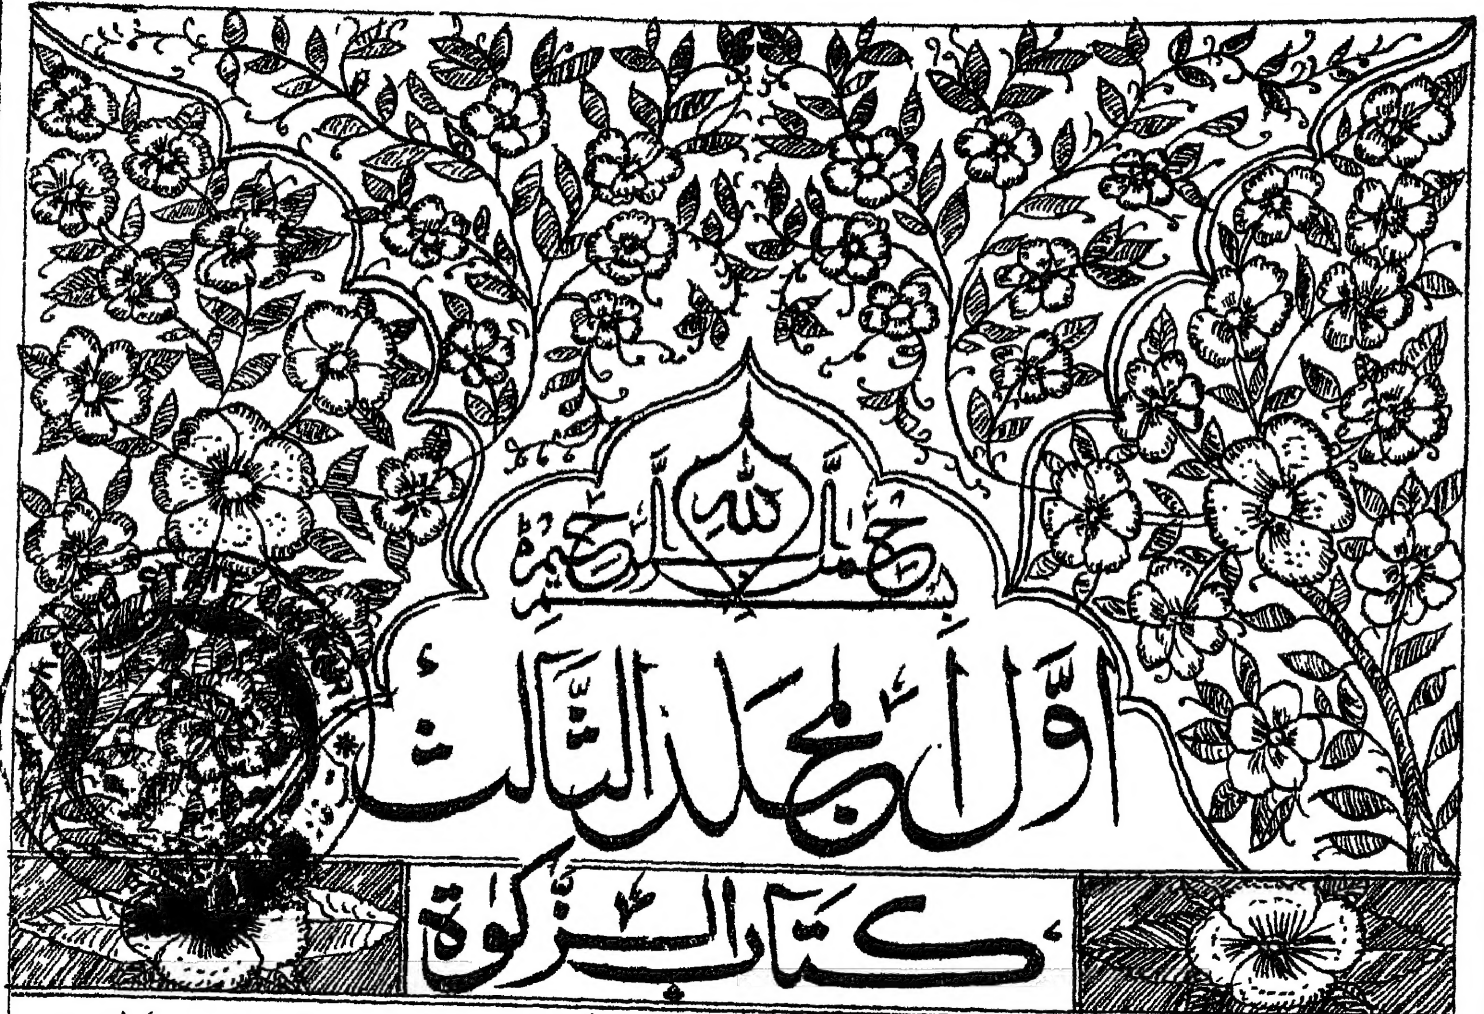 بسم الله الرحمن الرحيم
اَوَّل المجلد الثَّالث
كتاب الزَّكوٰة
STATE